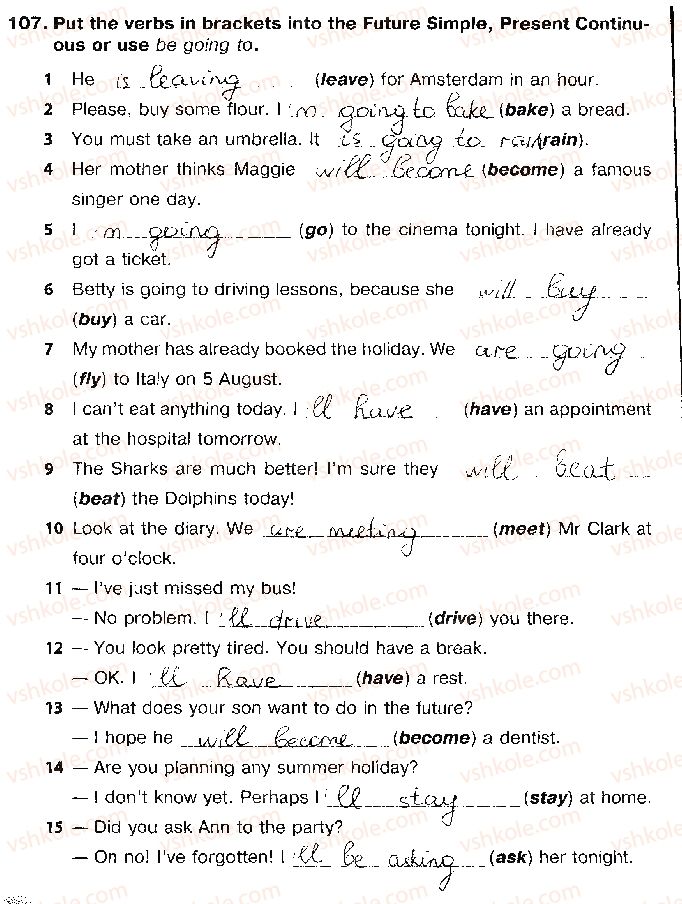 107. Put the verbs in brackets into the Future Simple, Present Continu-
ous or use be going to.
1 He is leaving (leave) for Amsterdam in an hour.
2 Please, buy some flour. I 'm going to bake (bake) a bread.
3 You must take an umbrella. It is going to rain (rain).
4 Her mother thinks Maggie will become (become) a famous
singer one day.
5 I 'm going (go) to the cinema tonight. I have already
got a ticket.
6 Betty is going to driving lessons, because she will buy
(buy) a car.
7 My mother has already booked the holiday. We are going
(fly) to Italy on 5 August.
8 I can't eat anything today. I 'll have (have) an appointment
at the hospital tomorrow.
9 The Sharks are much better! I'm sure they will beat
(beat) the Dolphins today!
10 Look at the diary. We are meeting (meet) Mr Clark at
four o'clock.
11 — I've just missed my bus!
— No problem. I 'll drive (drive) you there.
12 — You look pretty tired. You should have a break.
— OK. I 'll have (have) a rest.
13 — What does your son want to do in the future?
— I hope he will become (become) a dentist.
14 — Are you planning any summer holiday?
— I don't know yet. Perhaps I 'll stay (stay) at home.
15 — Did you ask Ann to the party?
— On no! I've forgotten! I 'll be asking (ask) her tonight.
vshkole.com